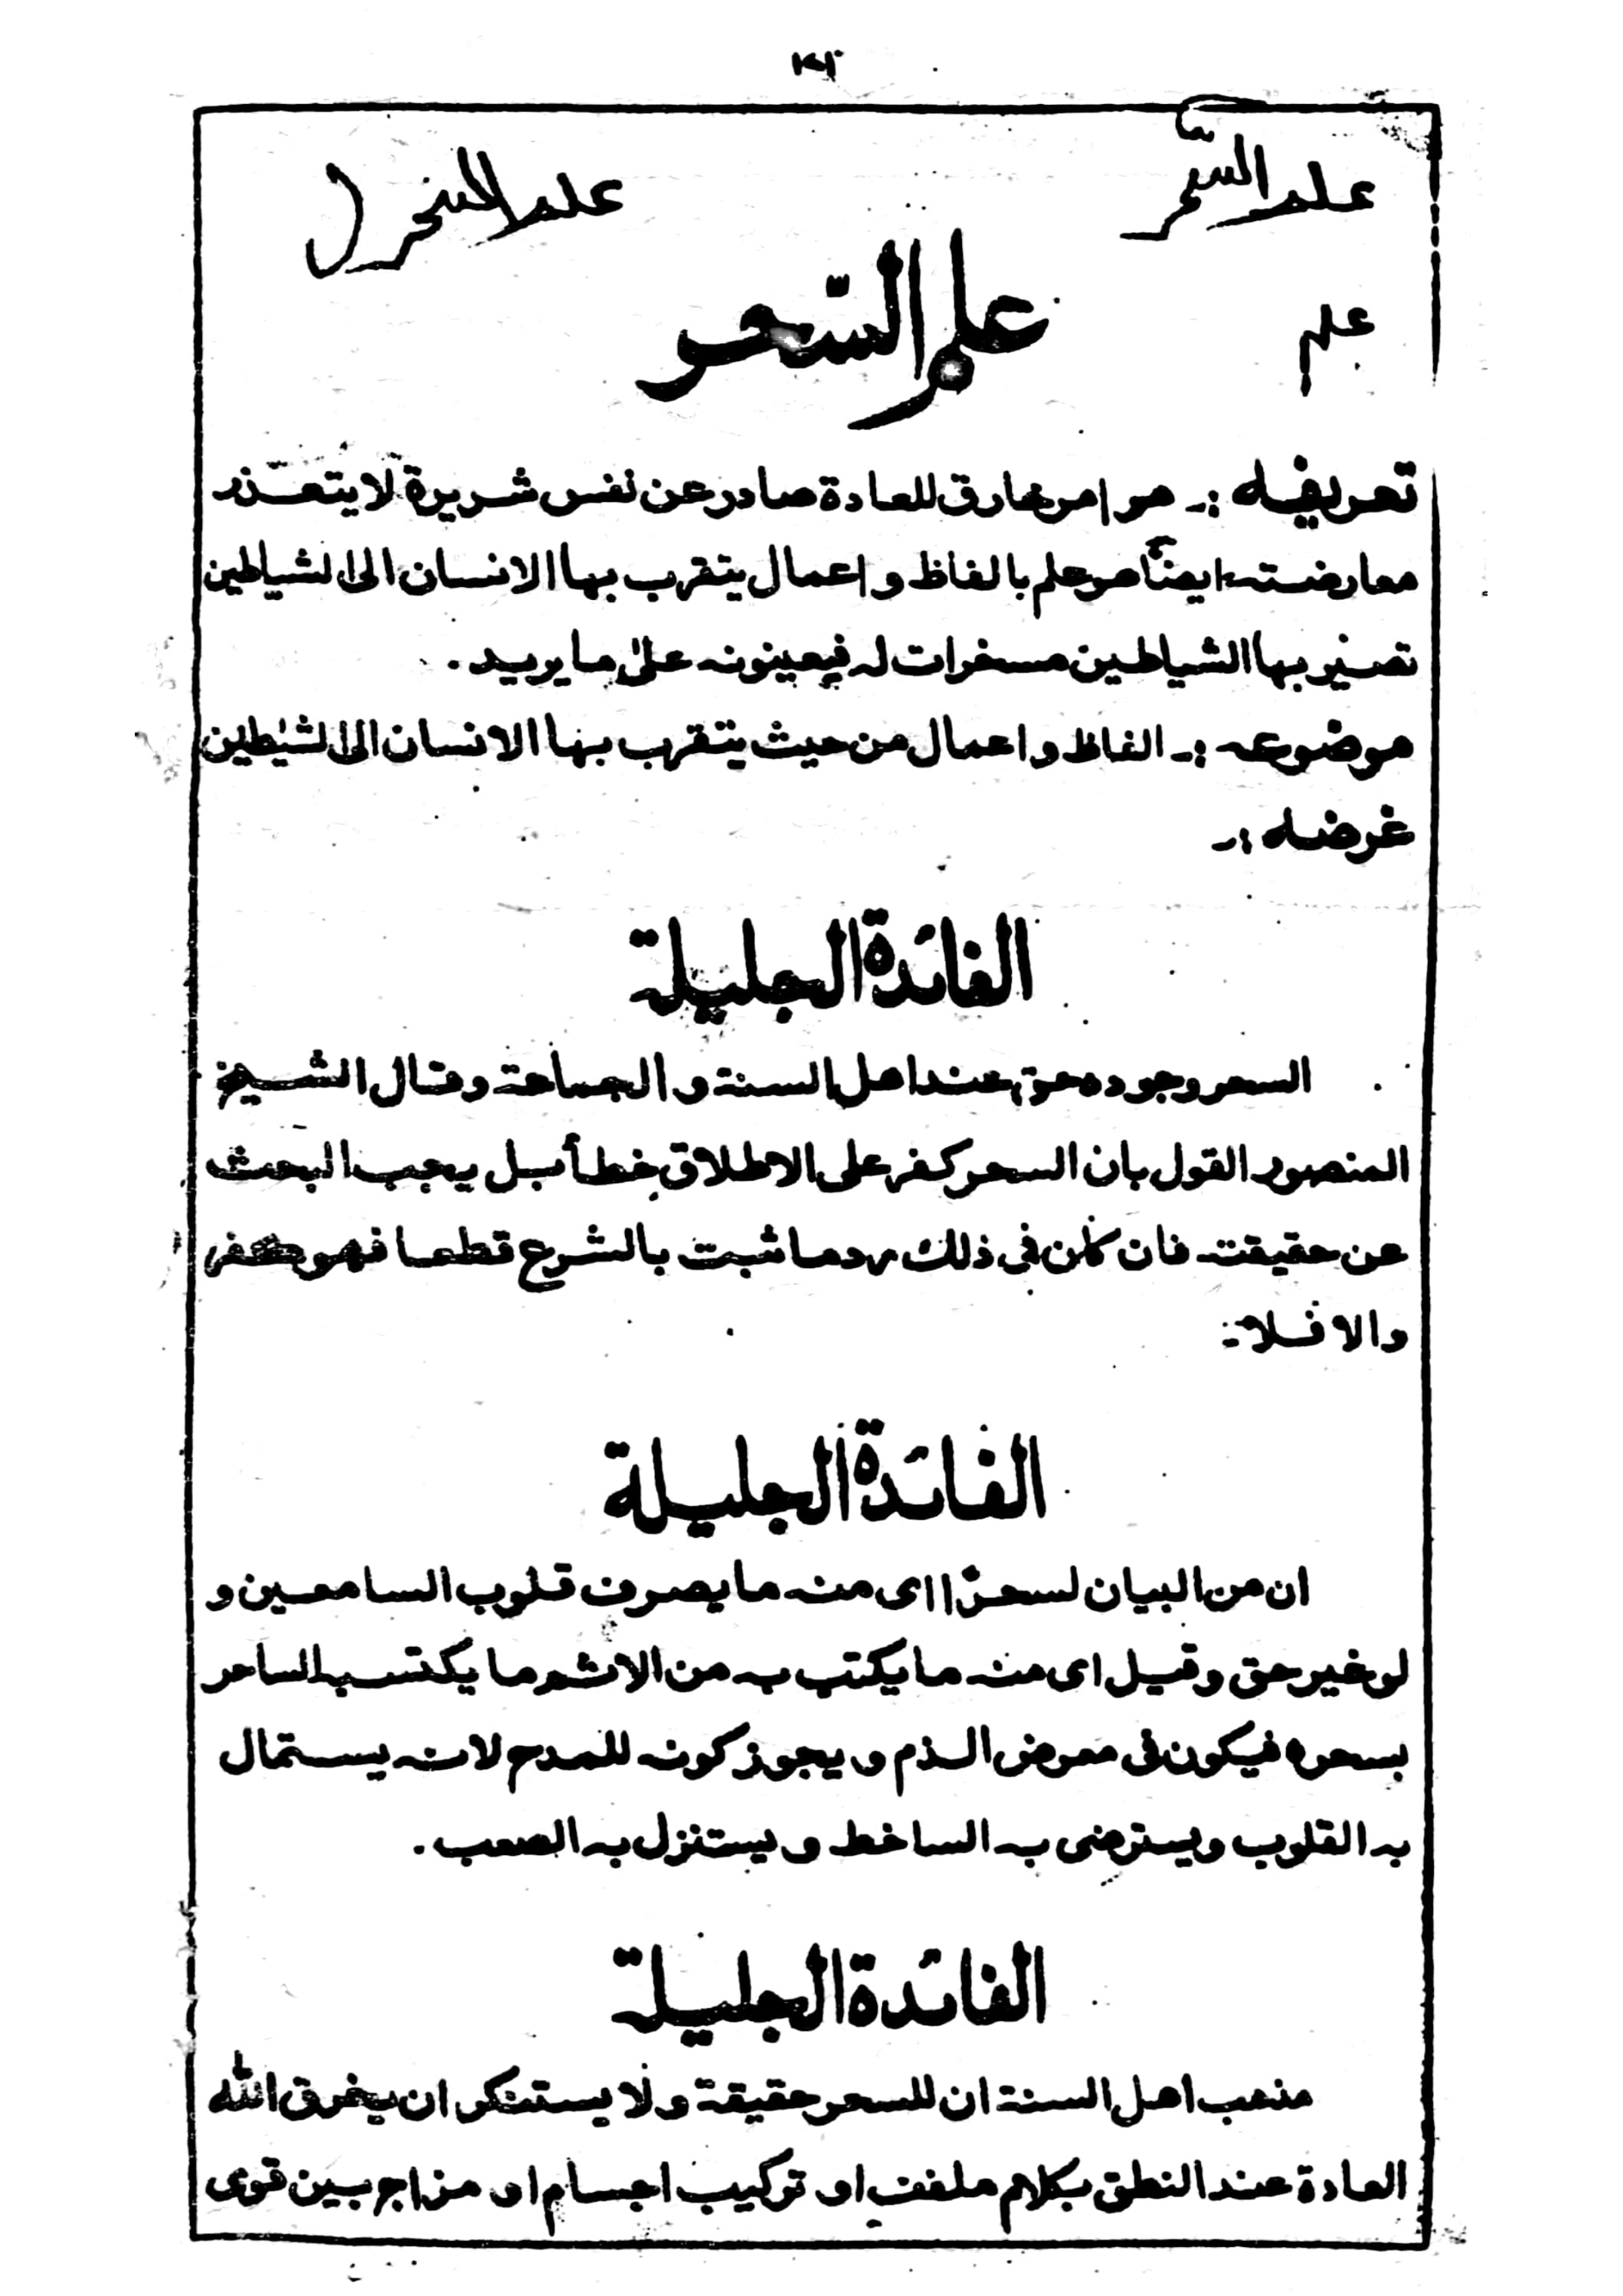 علم السحر
علم السحر
علم
علم السّحر
تعريفه :۔ هو امر خارق للعادة صادر عن نفس شريرة لا يتعذر
معارضته ايضاً هو علم بالفاظ و اعمال يتقرب بها الانسان الى الشياطين
تصير بها الشياطين مسخرات له فيعينونه على ما يريد .
موضوعه :۔ الفاظ و اعمال من حيث يتقرب بها الانسان الى الشيٰطين
غرضه :۔
الفائدة الجليلة
السحر وجوده حق عند اهل السنة و الجماعة و قال الشيخ
المنصور القول بان السحر كفر على الاطلاق خطأ بل يجب البحث
عن حقيقته فان كان فى ذلك رد ما ثبت بالشرع قطعا فهو كفر
والا فلا :۔
الفائدة الجليلة
ان من البيان لسحرًا اى منه ما يصرف قلوب السامعين و
لو غير حق و قيل اى منه ما يكتب به من الاثم ما يكتسب الساحر
بسحره فيكون فى معرض الذم و يجوز كونه للمدح لانه يستمال
به القلوب و يسترضى به الساخط و يستنزل به الصعب .
الفائدة الجليلة
مذهب اهل السنة ان للسحر حقيقة و لا يستنكر ان يخرق الله
العادة عند النطق بكلام ملفف او تركيب اجسام او مزاج بين قوى